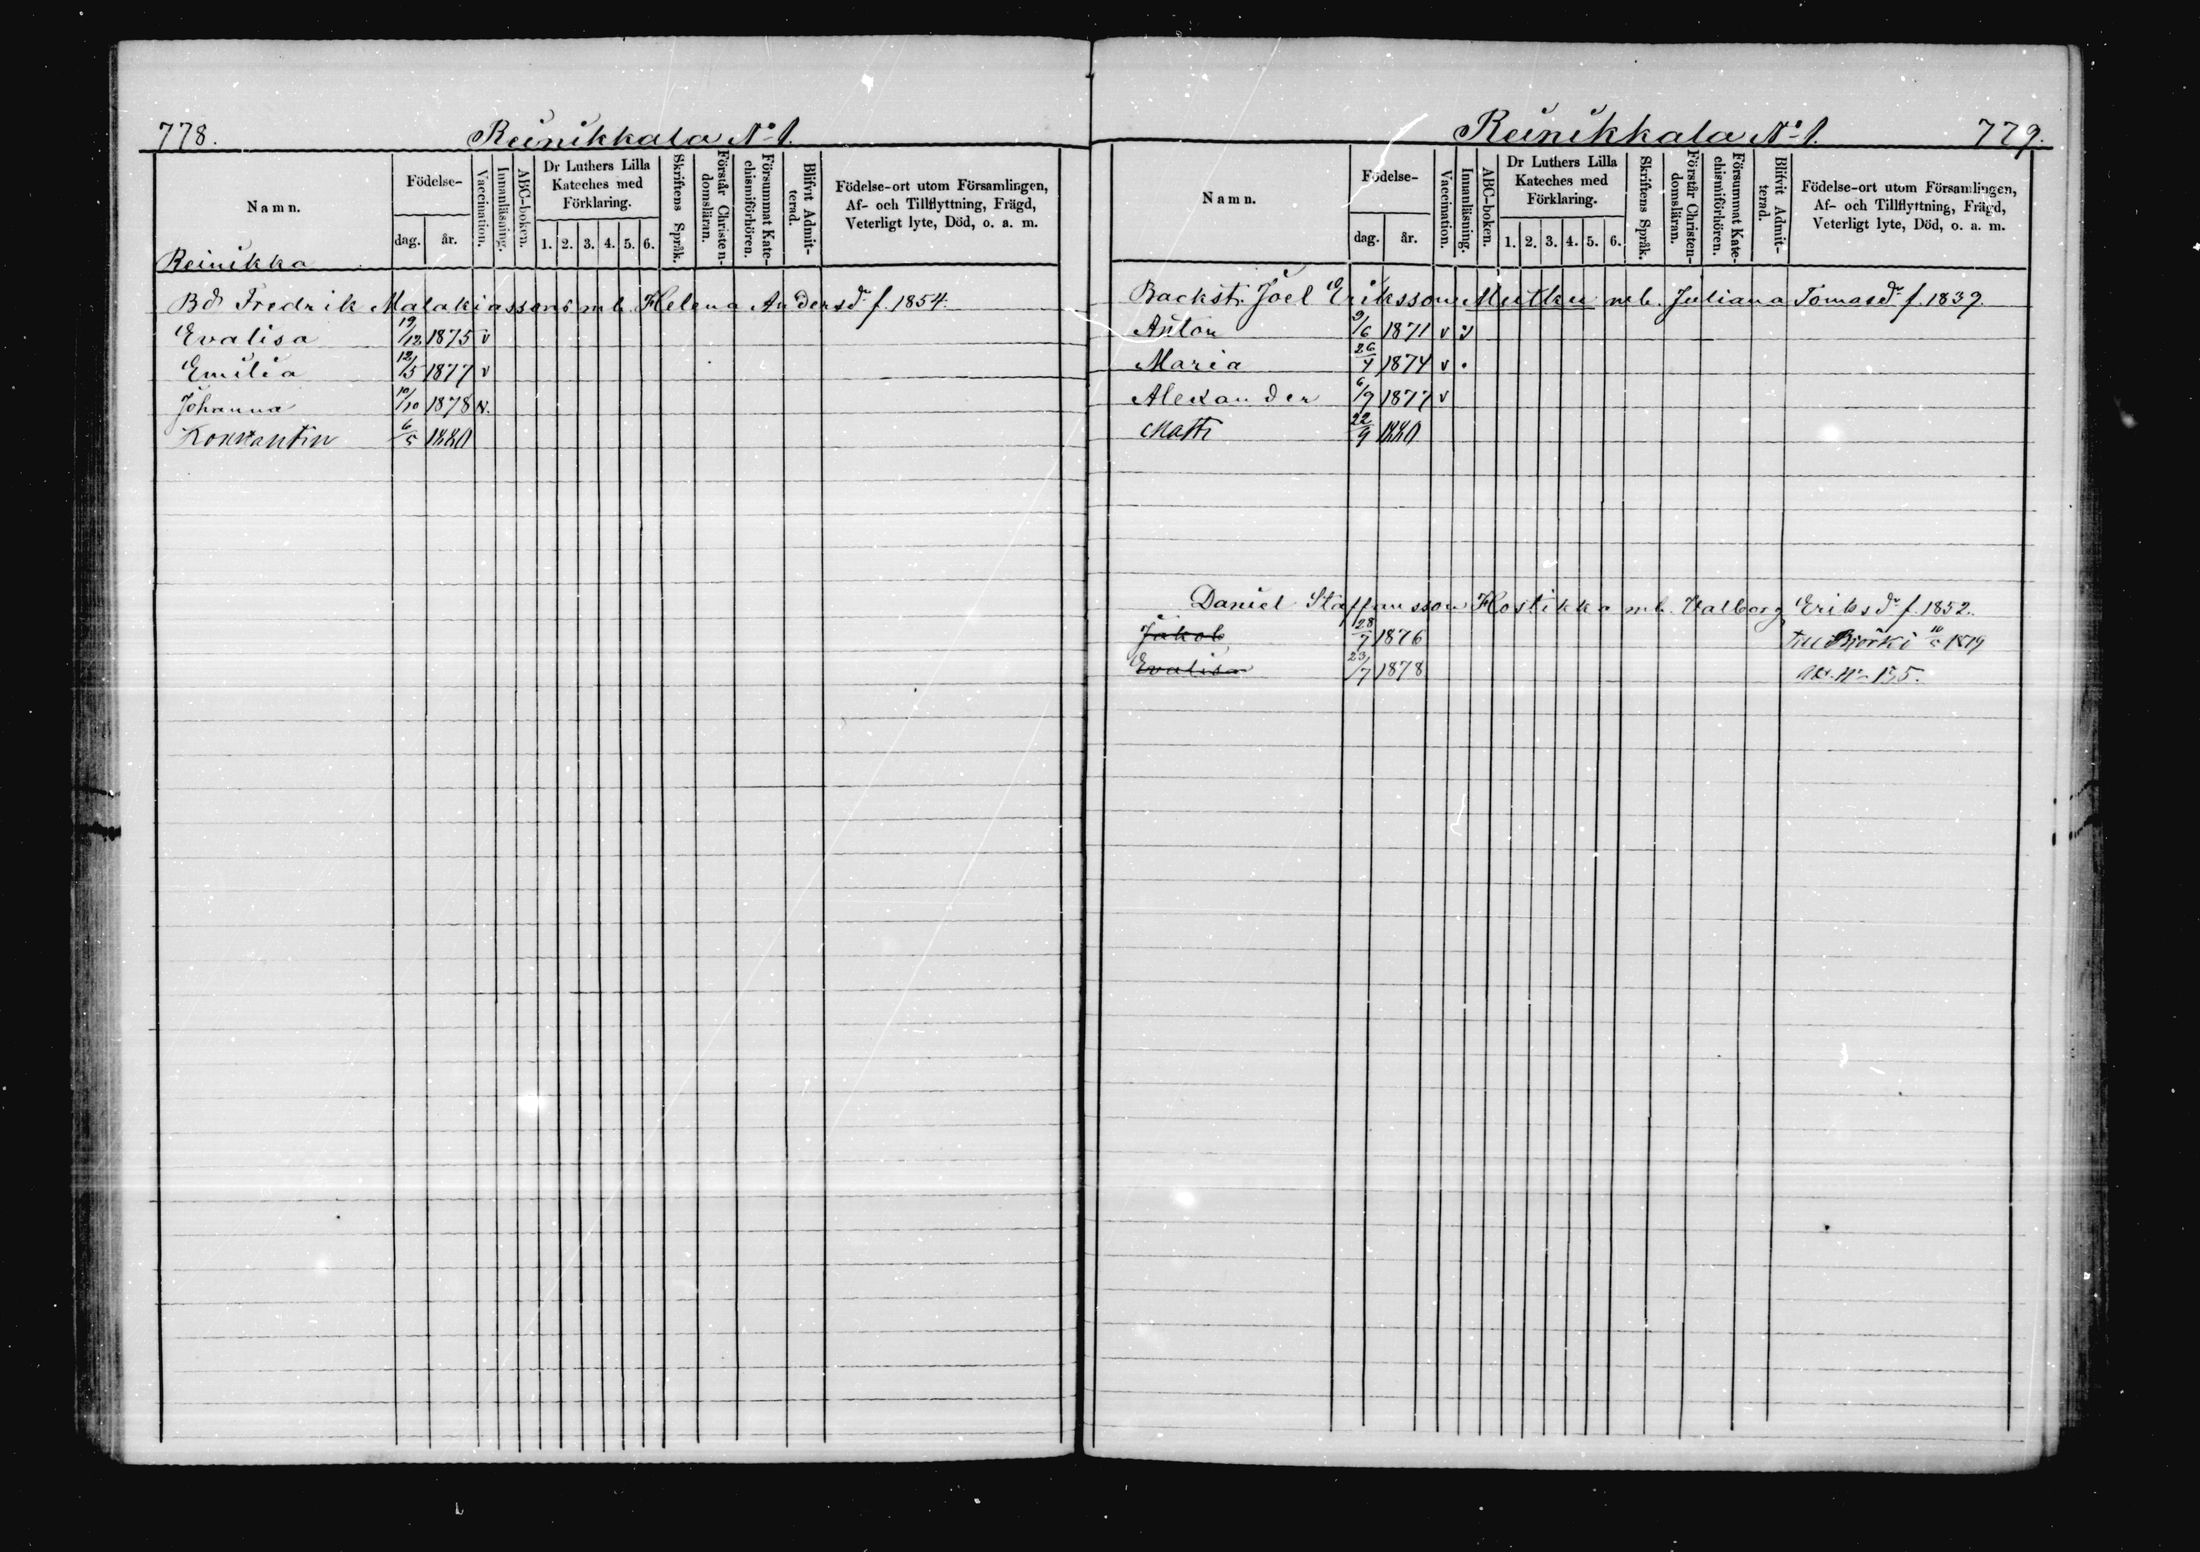 778.
Reinikkala No 1.
Namn.
Födelse-
dag.
år.
Vaccination.
Innanläsning.
ABC-boken.
Dr Luthers Lilla
Kateches med
Förklaring.
1. 2. 3. 4. 5. 6.
Skriftens Språk.
Förstår Christen-
domsläran.
Försummat Kate-
chismiförhören.
Blifvit Admit-
terad.
Födelse-ort utom Församlingen,
Af- och Tillflyttning, Frägd,
Veterligt lyte, Död, o. a. m.
Reinikka
Bd Fredrik Malakiassons m b. Helena Andersdr f. 1854.
Evalisa 19/12 1875 v
Emilia 12/5 1877 v
Johanna 10/10 1878 v.
Konstantin 6/5 1880
Reinikkala No 1.
779.
Namn.
Födelse-
dag.
år.
Vaccination.
Innanläsning.
ABC-boken.
Dr Luthers Lilla
Kateches med
Förklaring.
1. 2. 3. 4. 5. 6.
Skriftens Språk.
Förstår Christen-
domsläran.
Försummat Kate-
chismiförhören.
Blifvit Admit-
terad.
Födelse-ort utom Församlingen,
Af- och Tillflyttning, Frägd,
Veterligt lyte, Död, o. a. m.
Backst. Joel Eriksson Mutku m b. Juliana Tomasdr f. 1839.
Anton 9/6 1871 v
Maria 26/4 1874 v .
Alexander 6/9 1877 v
Matti 22/9 1880
Daniel Staffansson Hostikka m b. Valborg Eriksdr f. 1852.
Jakob 28/7 1876 till Björkö 1879
Evalisa 23/7 1878 No 135.